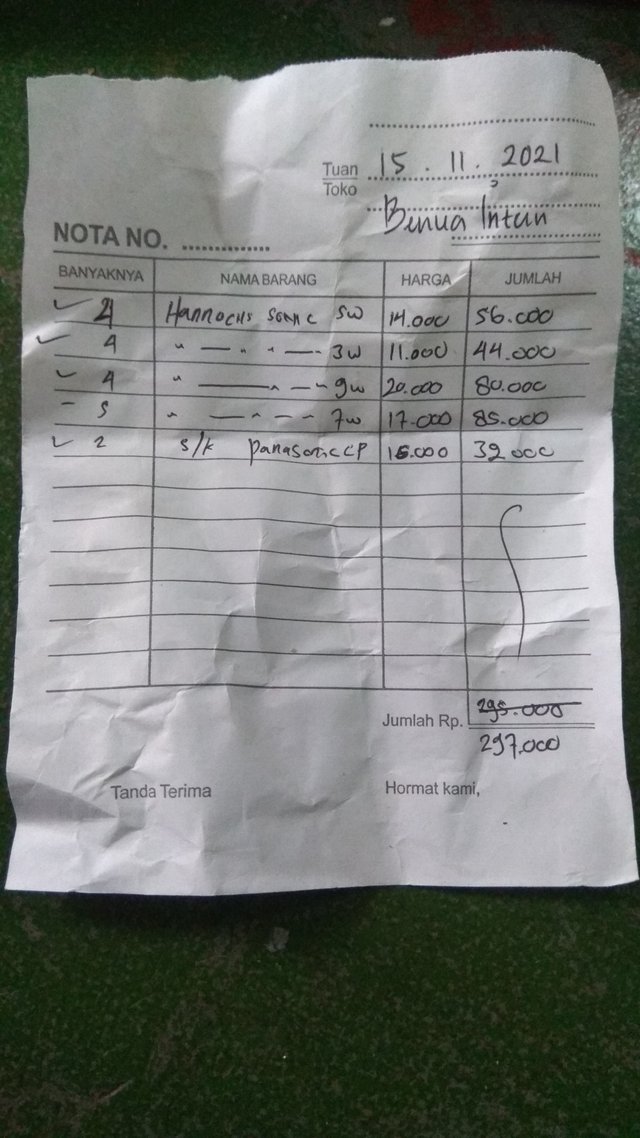 Tuan 15 . 11 . 2021
Toko
Benua Intan
NOTA NO. ................
BANYAKNYA NAMA BARANG HARGA JUMLAH
4 Hannochs Sonic 5w 14.000 56.000
4 " — " " — 3w 11.000 44.000
4 " — " — " 9w 20.000 80.000
5 " — " — — 7w 17.000 85.000
2 s/k panasonic CP 16.000 32.000
Jumlah Rp. 295.000
297.000
Tanda Terima Hormat kami,